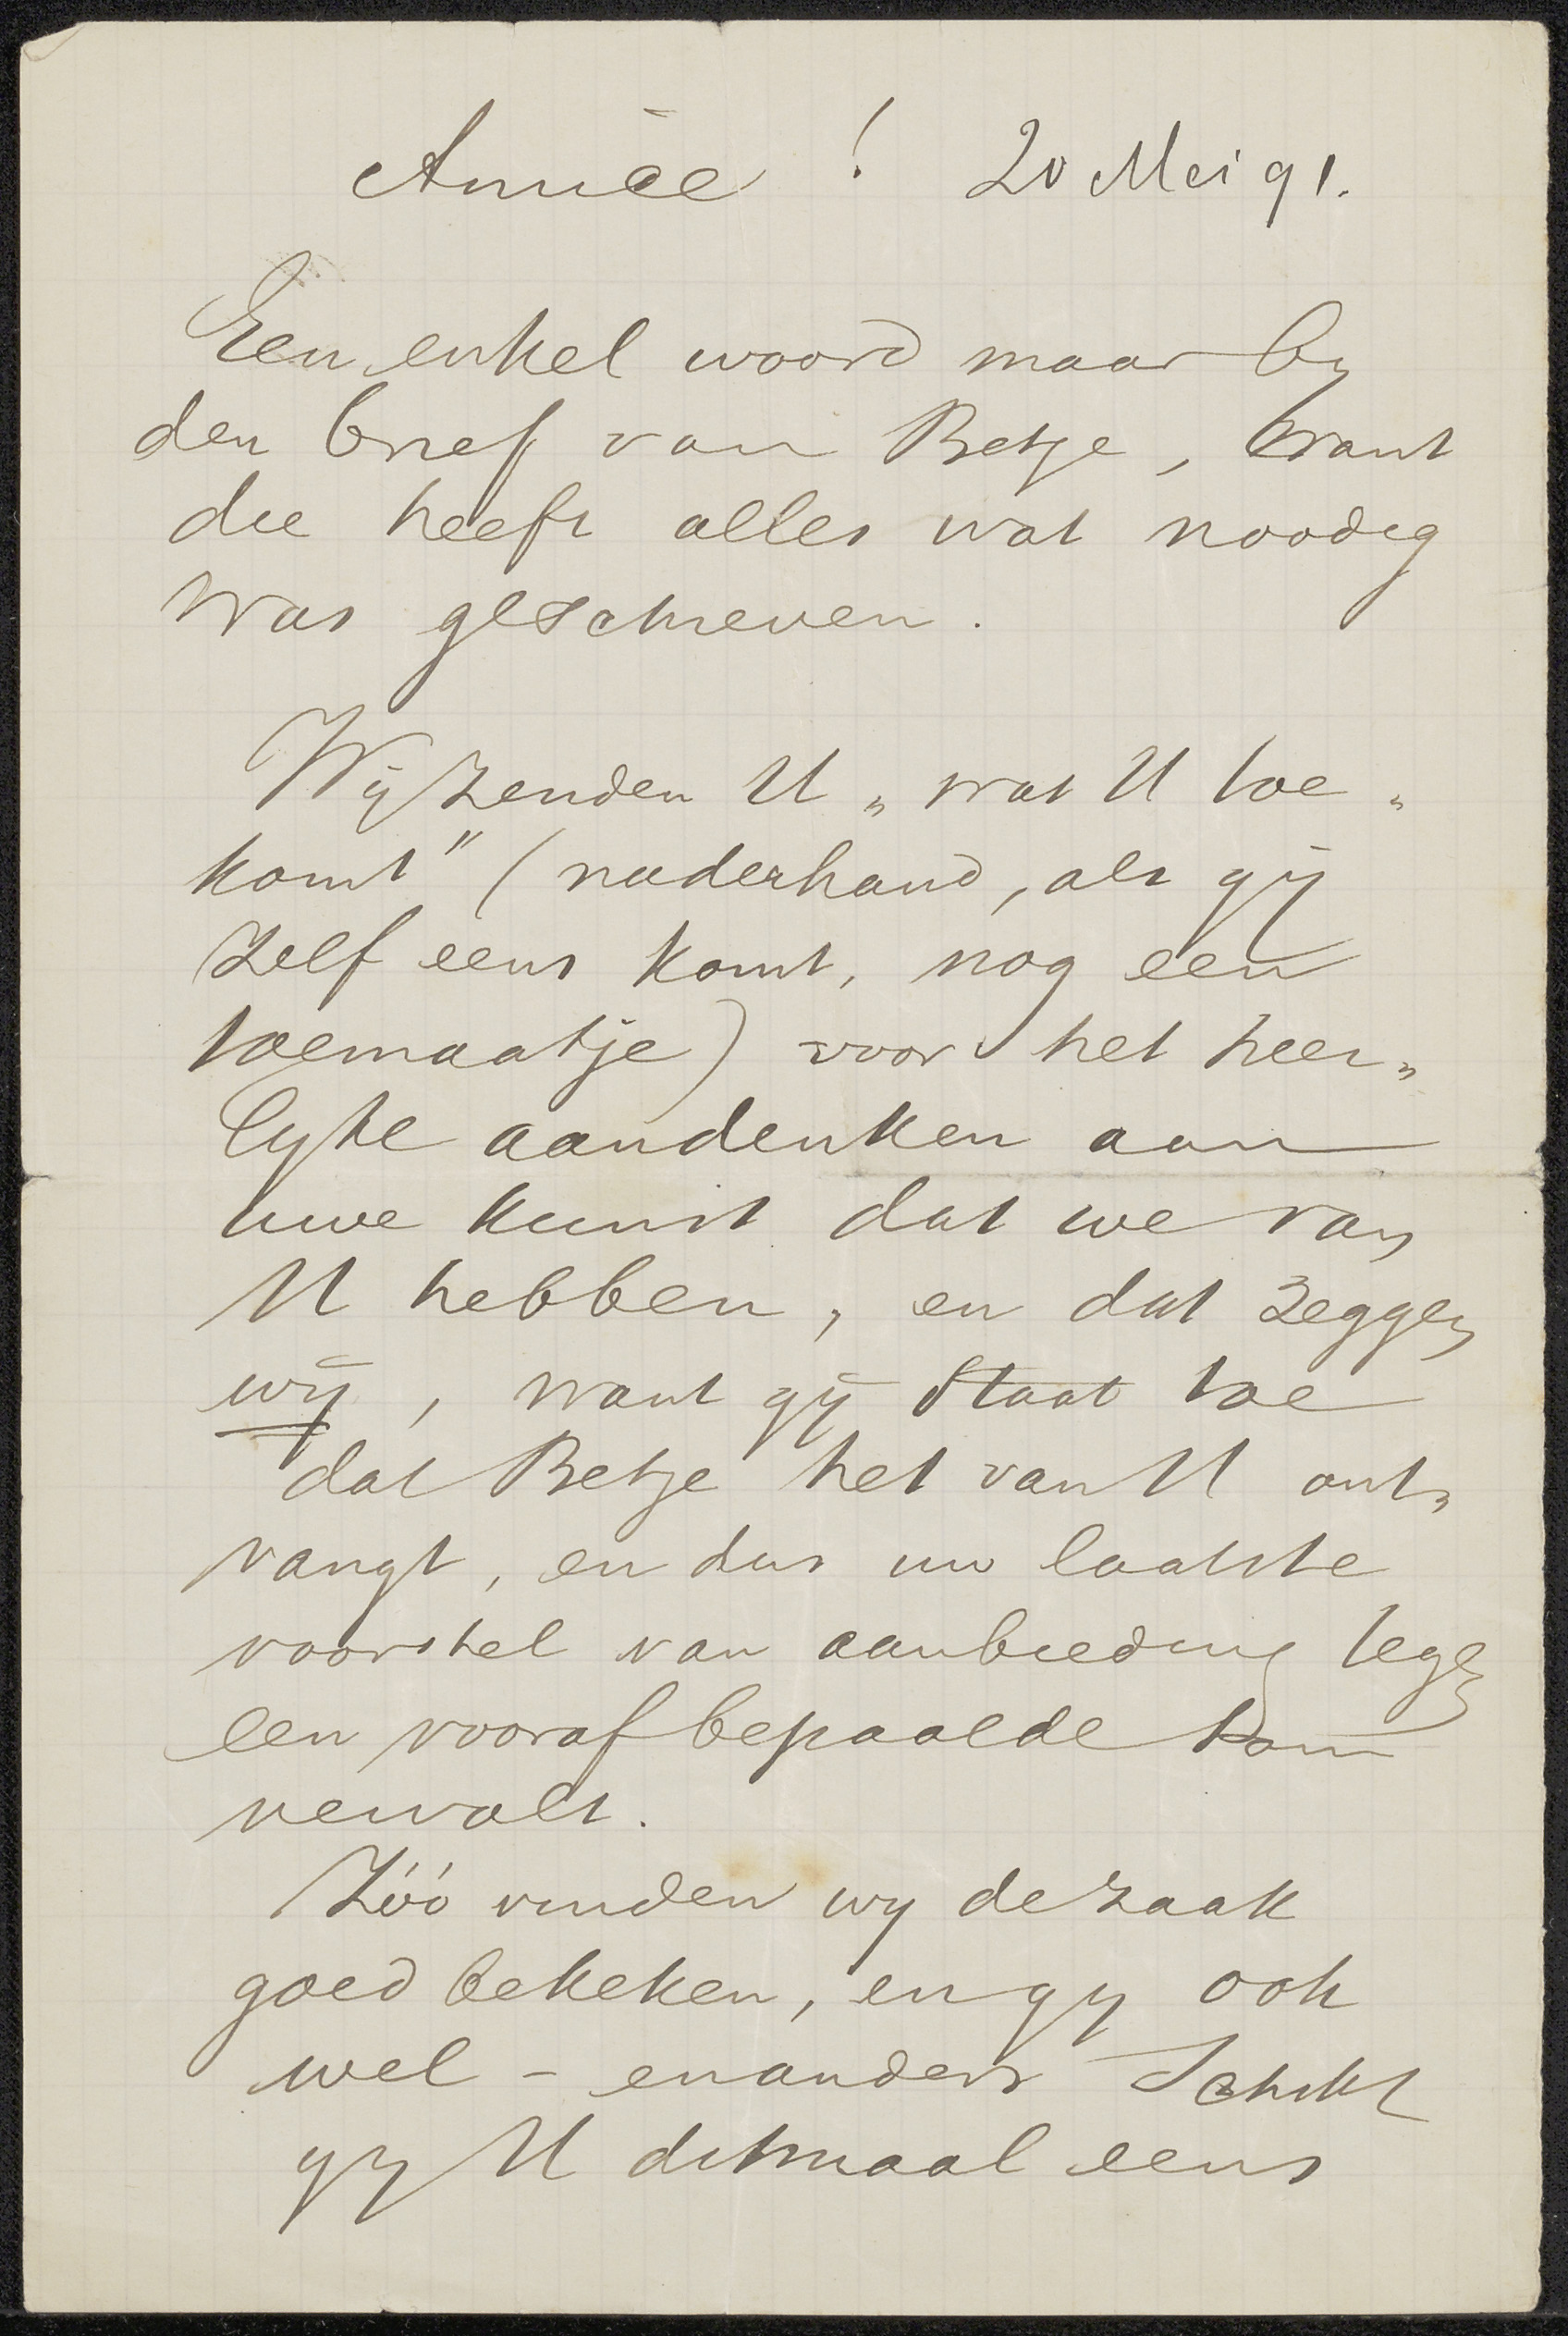 Amice ! 20 Mei 91.
Een enkel woord maar by
den brief van Betje, want
die heeft alles wat noodig
was geschreven.
Wij zenden U „wat U toe„
komt" (naderhand, als gij
zelf eens komt, nog een
toemaatje) voor het heer„
lyke aandenken aan
uwe kunst dat we van
U hebben, en dat zeggen
wij, want gij staat toe
dat Betje het van U ont„
vangt, en dus uw laatste
voorstel van aanbieding tegen
een vooraf bepaalde som
vervalt.
Zóó vinden wy de zaak
goed bekeken, en gy ook
wel – en anders schikt
gy U ditmaal eens